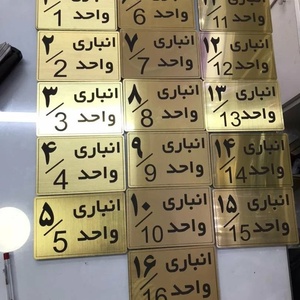 انباری ۱
واحد 1
انباری ۲
واحد 2
انباری ۳
واحد 3
انباری ۴
واحد 4
انباری ۵
واحد 5
انباری ۶
واحد 6
انباری ۷
واحد 7
انباری ۸
واحد 8
انباری ۹
واحد 9
انباری ۱۰
واحد 10
انباری ۱۶
واحد 16
واحد 11
انباری ۱۲
واحد 12
انباری ۱۳
واحد 13
انباری ۱۴
واحد 14
انباری ۱۵
واحد 15